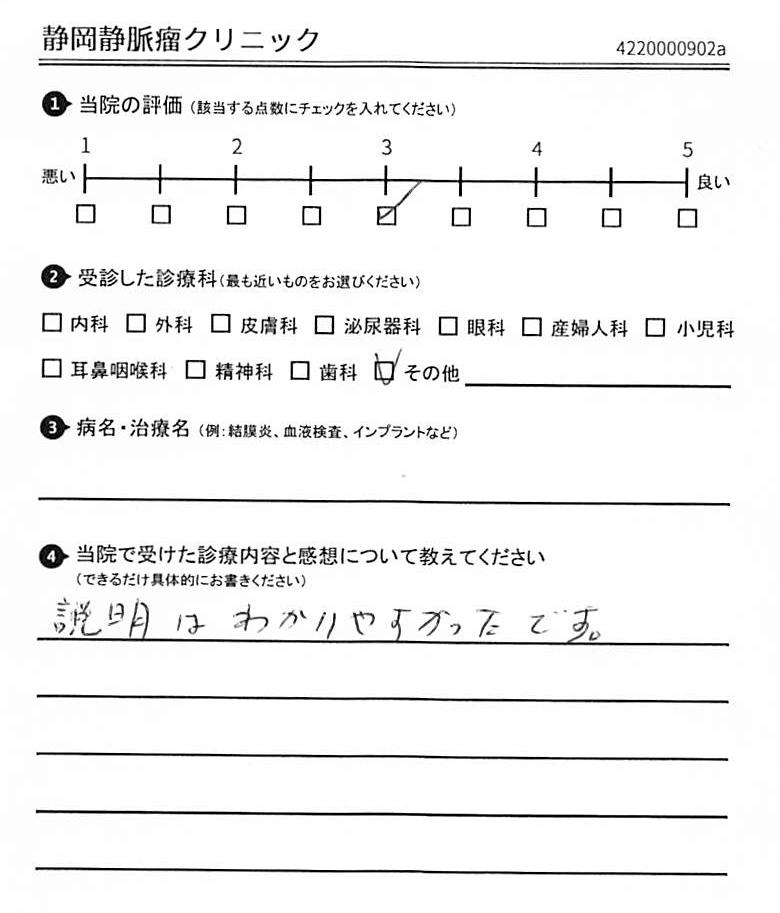 静岡静脈瘤クリニック
4220000902a
1 当院の評価(該当する点数にチェックを入れてください)
1 2 3 4 5
悪い 良い
2 受診した診療科(最も近いものをお選びください)
□ 内科 □ 外科 □ 皮膚科 □ 泌尿器科 □ 眼科 □ 産婦人科 □ 小児科
□ 耳鼻咽喉科 □ 精神科 □ 歯科 ☑ その他
3 病名・治療名(例:結膜炎、血液検査、インプラントなど)
4 当院で受けた診療内容と感想について教えてください
(できるだけ具体的にお書きください)
説明はわかりやすかったです。